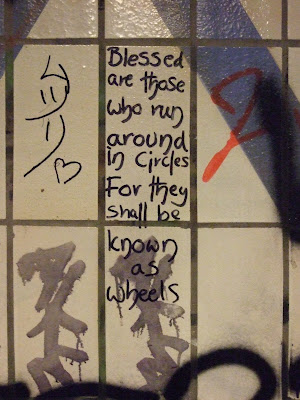 Blessed
are those
who run
around
in circles
For they
shall be
known
as
wheels